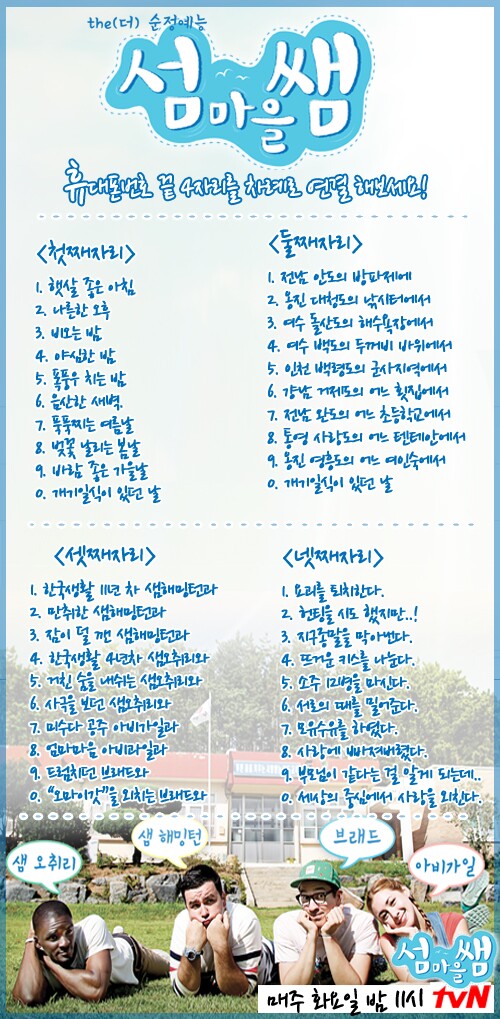 the(더) 순정예능
섬마을쌤
휴대폰번호 끝 4자리를 차례로 연결 해보세요!
<첫째자리>
1. 햇살 좋은 아침
2. 나른한 오후
3. 비오는 밤
4. 야심한 밤
5. 폭풍우 치는 밤
6. 음산한 새벽.
7. 푹푹찌는 여름날
8. 벚꽃 날리는 봄날
9. 바람 좋은 가을날
0. 개기일식이 있던 날
<둘째자리>
1. 전남 안도의 방파제에
2. 옹진 대청도의 낚시터에서
3. 여수 돌산도의 해수욕장에서
4. 여수 백도의 두꺼비 바위에서
5. 인천 백령도의 군사지역에서
6. 강남 거제도의 어느 횟집에서
7. 전남 완도의 어느 초등학교에서
8. 통영 사량도의 어느 텐테안에서
9. 옹진 영흥도의 어느 여인숙에서
0. 개기일식이 있던 날
<셋째자리>
1. 한국생활 11년 차 샘해밍턴과
2. 만취한 샘해밍턴과
3. 잠이 덜 깬 샘해밍턴과
4. 한국생활 4년차 샘오취리와
5. 거친 숨을 내쉬는 샘오취리와
6. 사극을 보던 샘오취리와
7. 미수다 공주 아비가일과
8. 엄마마음 아비가일과
9. 트림치던 브래드와
0. "오마이갓"을 외치는 브래드와
<넷째자리>
1. 요괴를 퇴치한다.
2. 헌팅을 시도 했지만..!
3. 지구종말을 막아낸다.
4. 뜨거운 키스를 나눈다.
5. 소주 12병을 마신다.
6. 서로의 때를 밀어준다.
7. 모유수유를 하였다.
8. 사랑에 빠져버렸다.
9. 부모님이 같다는 걸 알게 되는데..
0. 세상의 중심에서 사랑을 외친다.
샘 오취리
샘 해밍턴
브래드
아비가일
섬마을쌤
매주 화요일 밤 11시 tvN